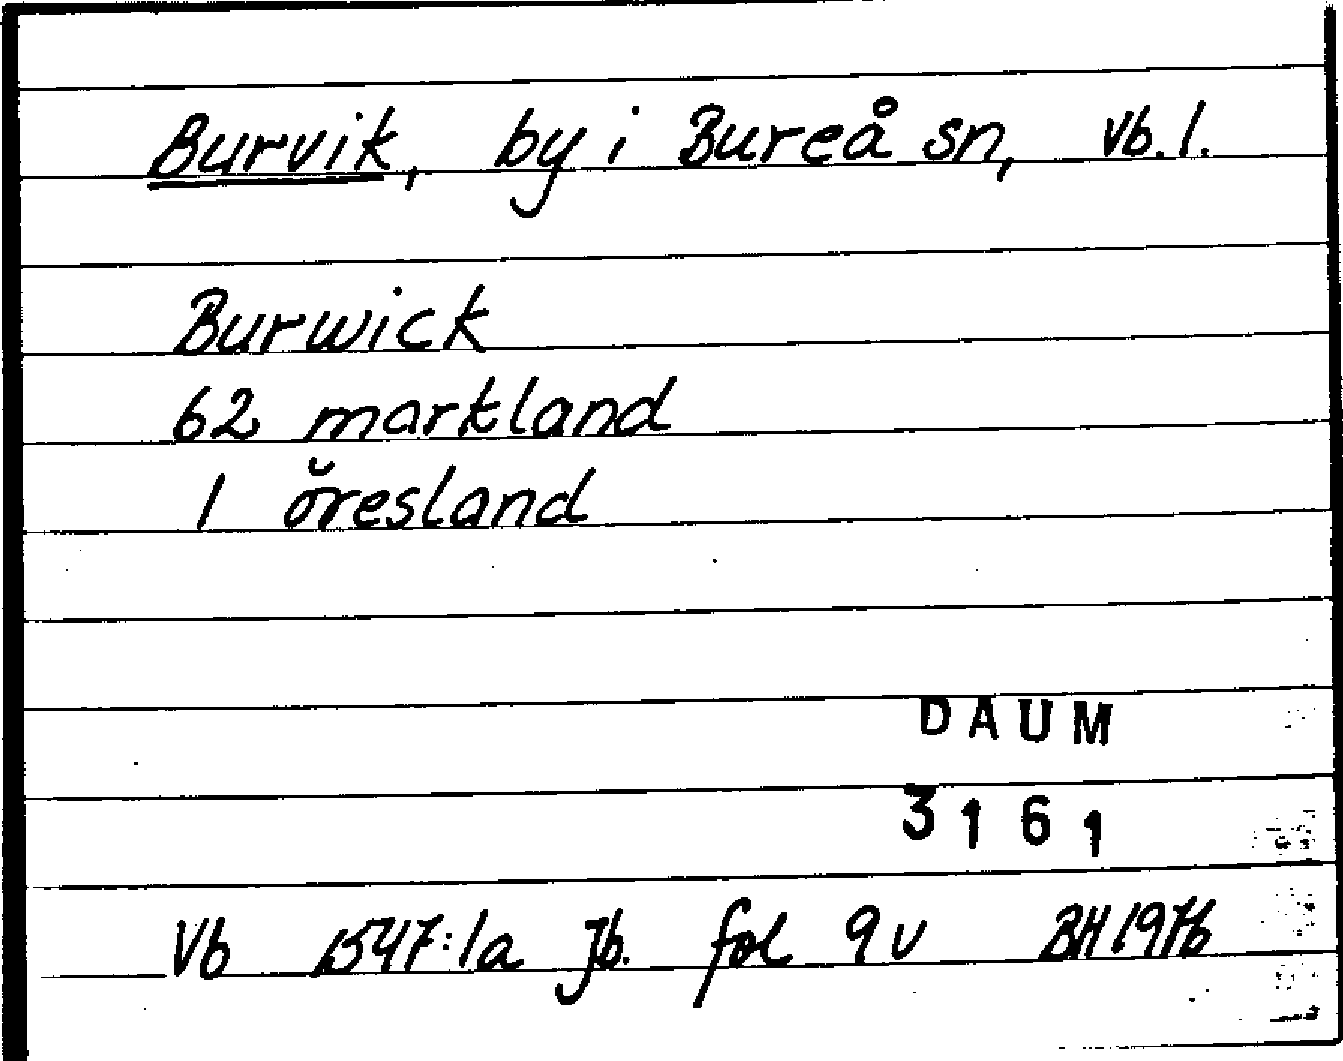 Burvik, by i Bureå sn, Vb. l.
Burwick
62 markland
1 öresland
DAUM
3161
Vb 1547:1a Jb. fol 9 v BH 1976